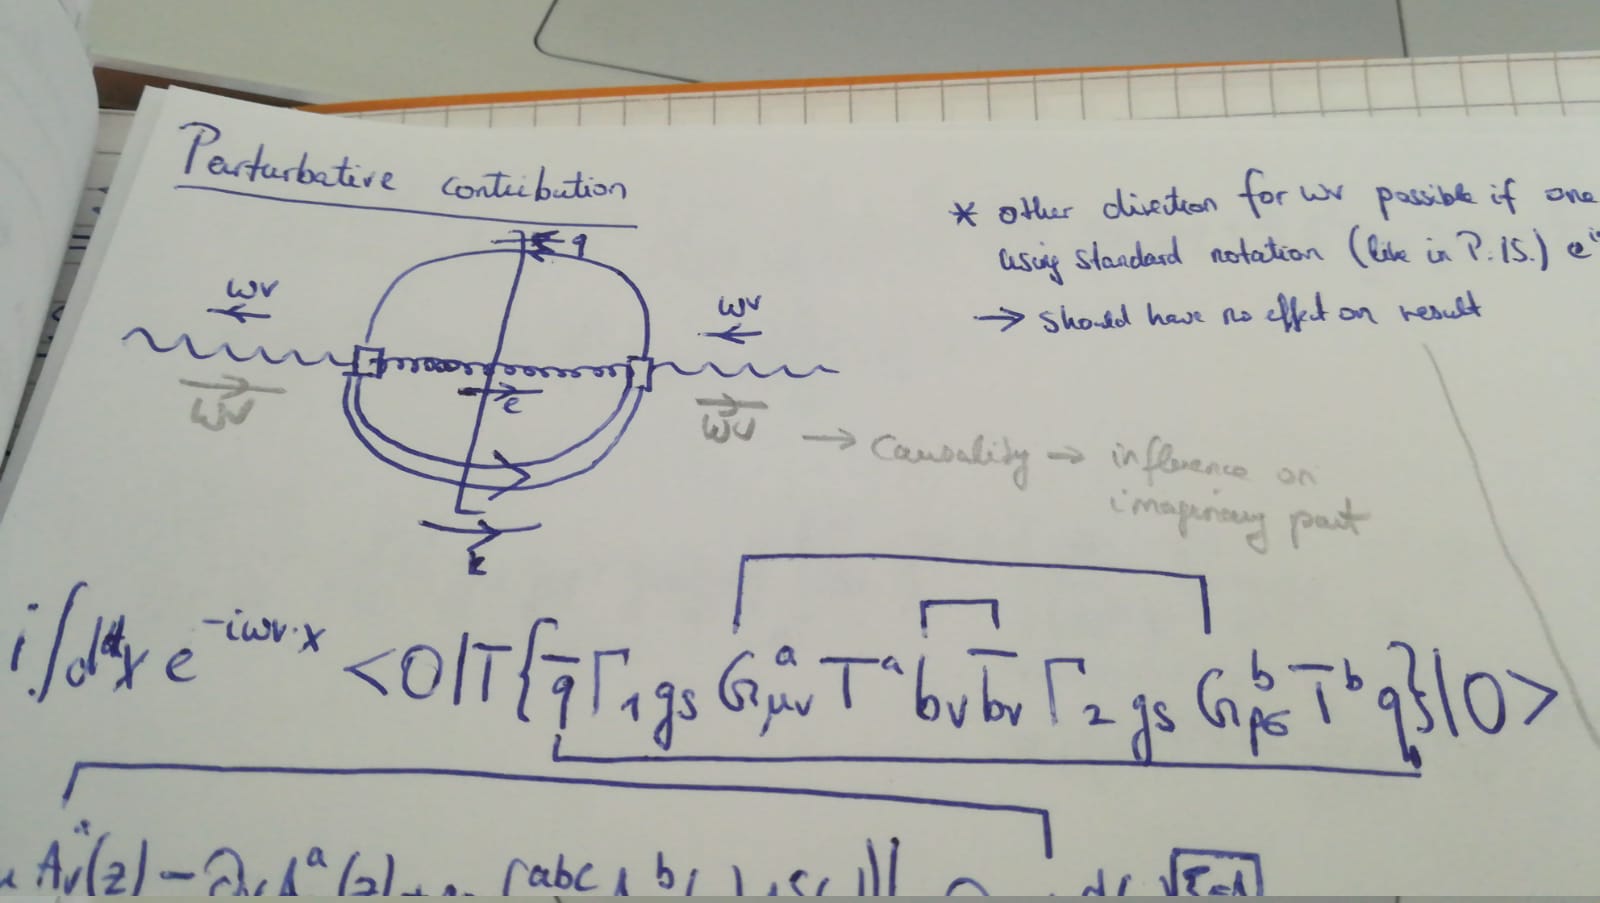 Perturbative contribution
q
* other direction for ωv possible if one
using standard notation (like in P.&S.) e^i
→ should have no effect on result
ωv
ωv
ℓ
ωv
ωv → Causality → influence on
imaginary part
k
i∫d⁴x e^{-iωv·x} <0|T{q̄ Γ₁ gs G^a_{μν} T^a b_v b̄_v Γ₂ gs G^b_{ρσ} T^b q}|0>
A_ν(z) - ∂_ν A^a (z) + f^{abc} A^b